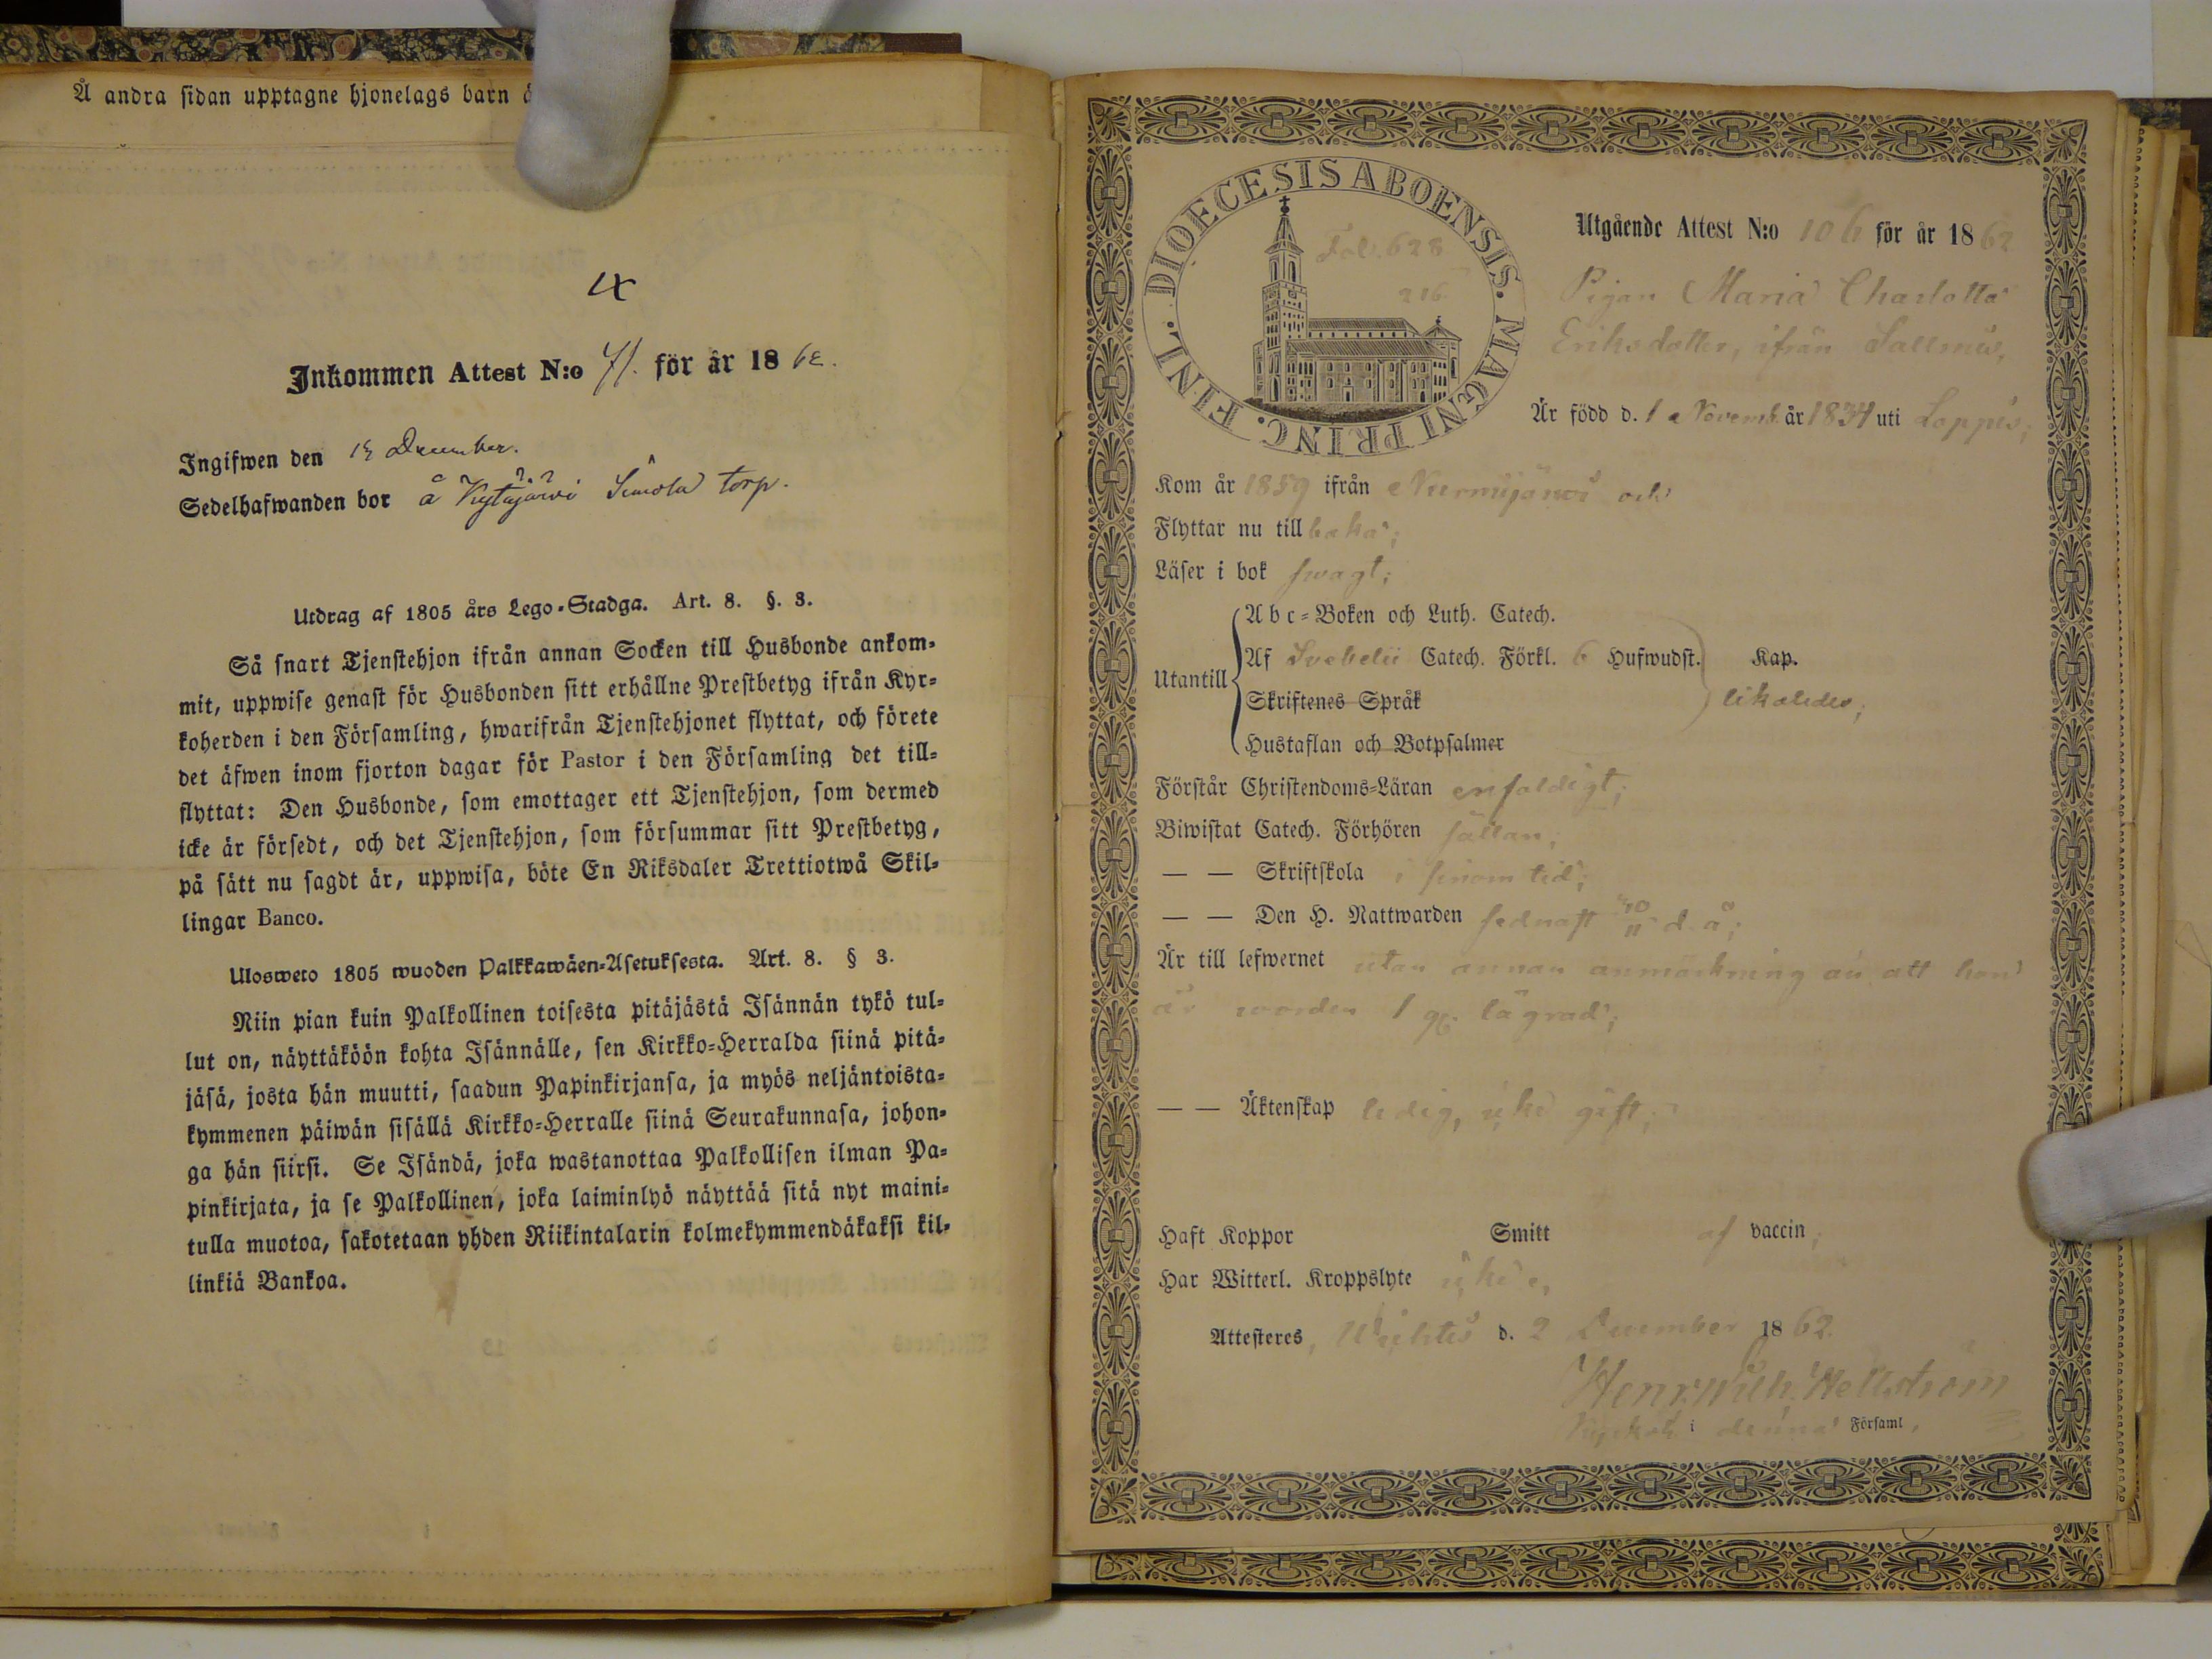 Å andra sidan upptagne hjonelags barn
Inkommen Attest N:o 71. för år 1862.
Ingifwen den December.
Sedelhafwanden bor å torp.
Utdrag af 1805 års Lego-Stadga. Art. 8. §. 3.
Så snart Tjenstehjon ifrån annan Socken till Husbonde ankom-
mit, uppwise genast för Husbonden sitt erhållne Prestbetyg ifrån Kyr-
koherden i den Församling, hwarifrån Tjenstehjonet flyttat, och förete
det äfwen inom fjorton dagar för Pastor i den Församling det till-
flyttat: Den Husbonde, som emottager ett Tjenstehjon, som dermed
icke är försedt, och det Tjenstehjon, som försummar sitt Prestbetyg,
på sätt nu sagdt är, uppwisa, böte En Riksdaler Trettiotwå Skil-
lingar Banco.
Ulosweto 1805 wuoden Palkkawäen-Asetuksesta. Art. 8. § 3.
Niin pian kuin Palkollinen toisesta pitäjästä Isännän tykö tul-
lut on, näyttäköön kohta Isännälle, sen Kirkko-Herralda siinä pitä-
jäsä, josta hän muutti, saadun Papinkirjansa, ja myös neljäntoista-
kymmenen päiwän sisällä Kirkko-Herralle siinä Seurakunnasa, johon-
ga hän siirsi. Se Isändä, joka wastanottaa Palkollisen ilman Pa-
pinkirjata, ja se Palkollinen, joka laiminlyö näyttää sitä nyt maini-
tulla muotoa, sakotetaan yhden Riikintalarin kolmekymmendäkaksi kil-
linkiä Bankoa.
DIOECESIS ABOENSIS. MAGNI PRINC. FINL.
Fol. 628
216
Utgående Attest N:o 106 för år 1862
Pigan Maria Charlotta
Eriksdotter, ifrån
Är född d. 1 Novemb. år 1834 uti Loppis;
Kom år 1859 ifrån Nurmijärvi och
Flyttar nu tillbaka;
Läser i bok swagt;
Utantill
Abc-Boken och Luth. Catech.
Af Svebelii Catech. Förkl. 6 Hufwudst. Kap.
Skriftenes Språk
likaledes;
Hustaflan och Botpsalmer
Förstår Christendoms-Läran enfaldigt;
Biwistat Catech. Förhören sällan;
— — Skriftskola i sinom tid;
— — Den H. Nattwarden sednast d. å;
Är till lefwernet utan annan anmärkning än att hon
är worden 1 lägrad;
— — Äktenskap ledig, gift;
Haft Koppor Smitt af vaccin;
Har Witterl. Kroppslyte
Attesteres, Wichtis d. 2 December 1862.
Henr. Wilh. Hellström
i denna Församl.